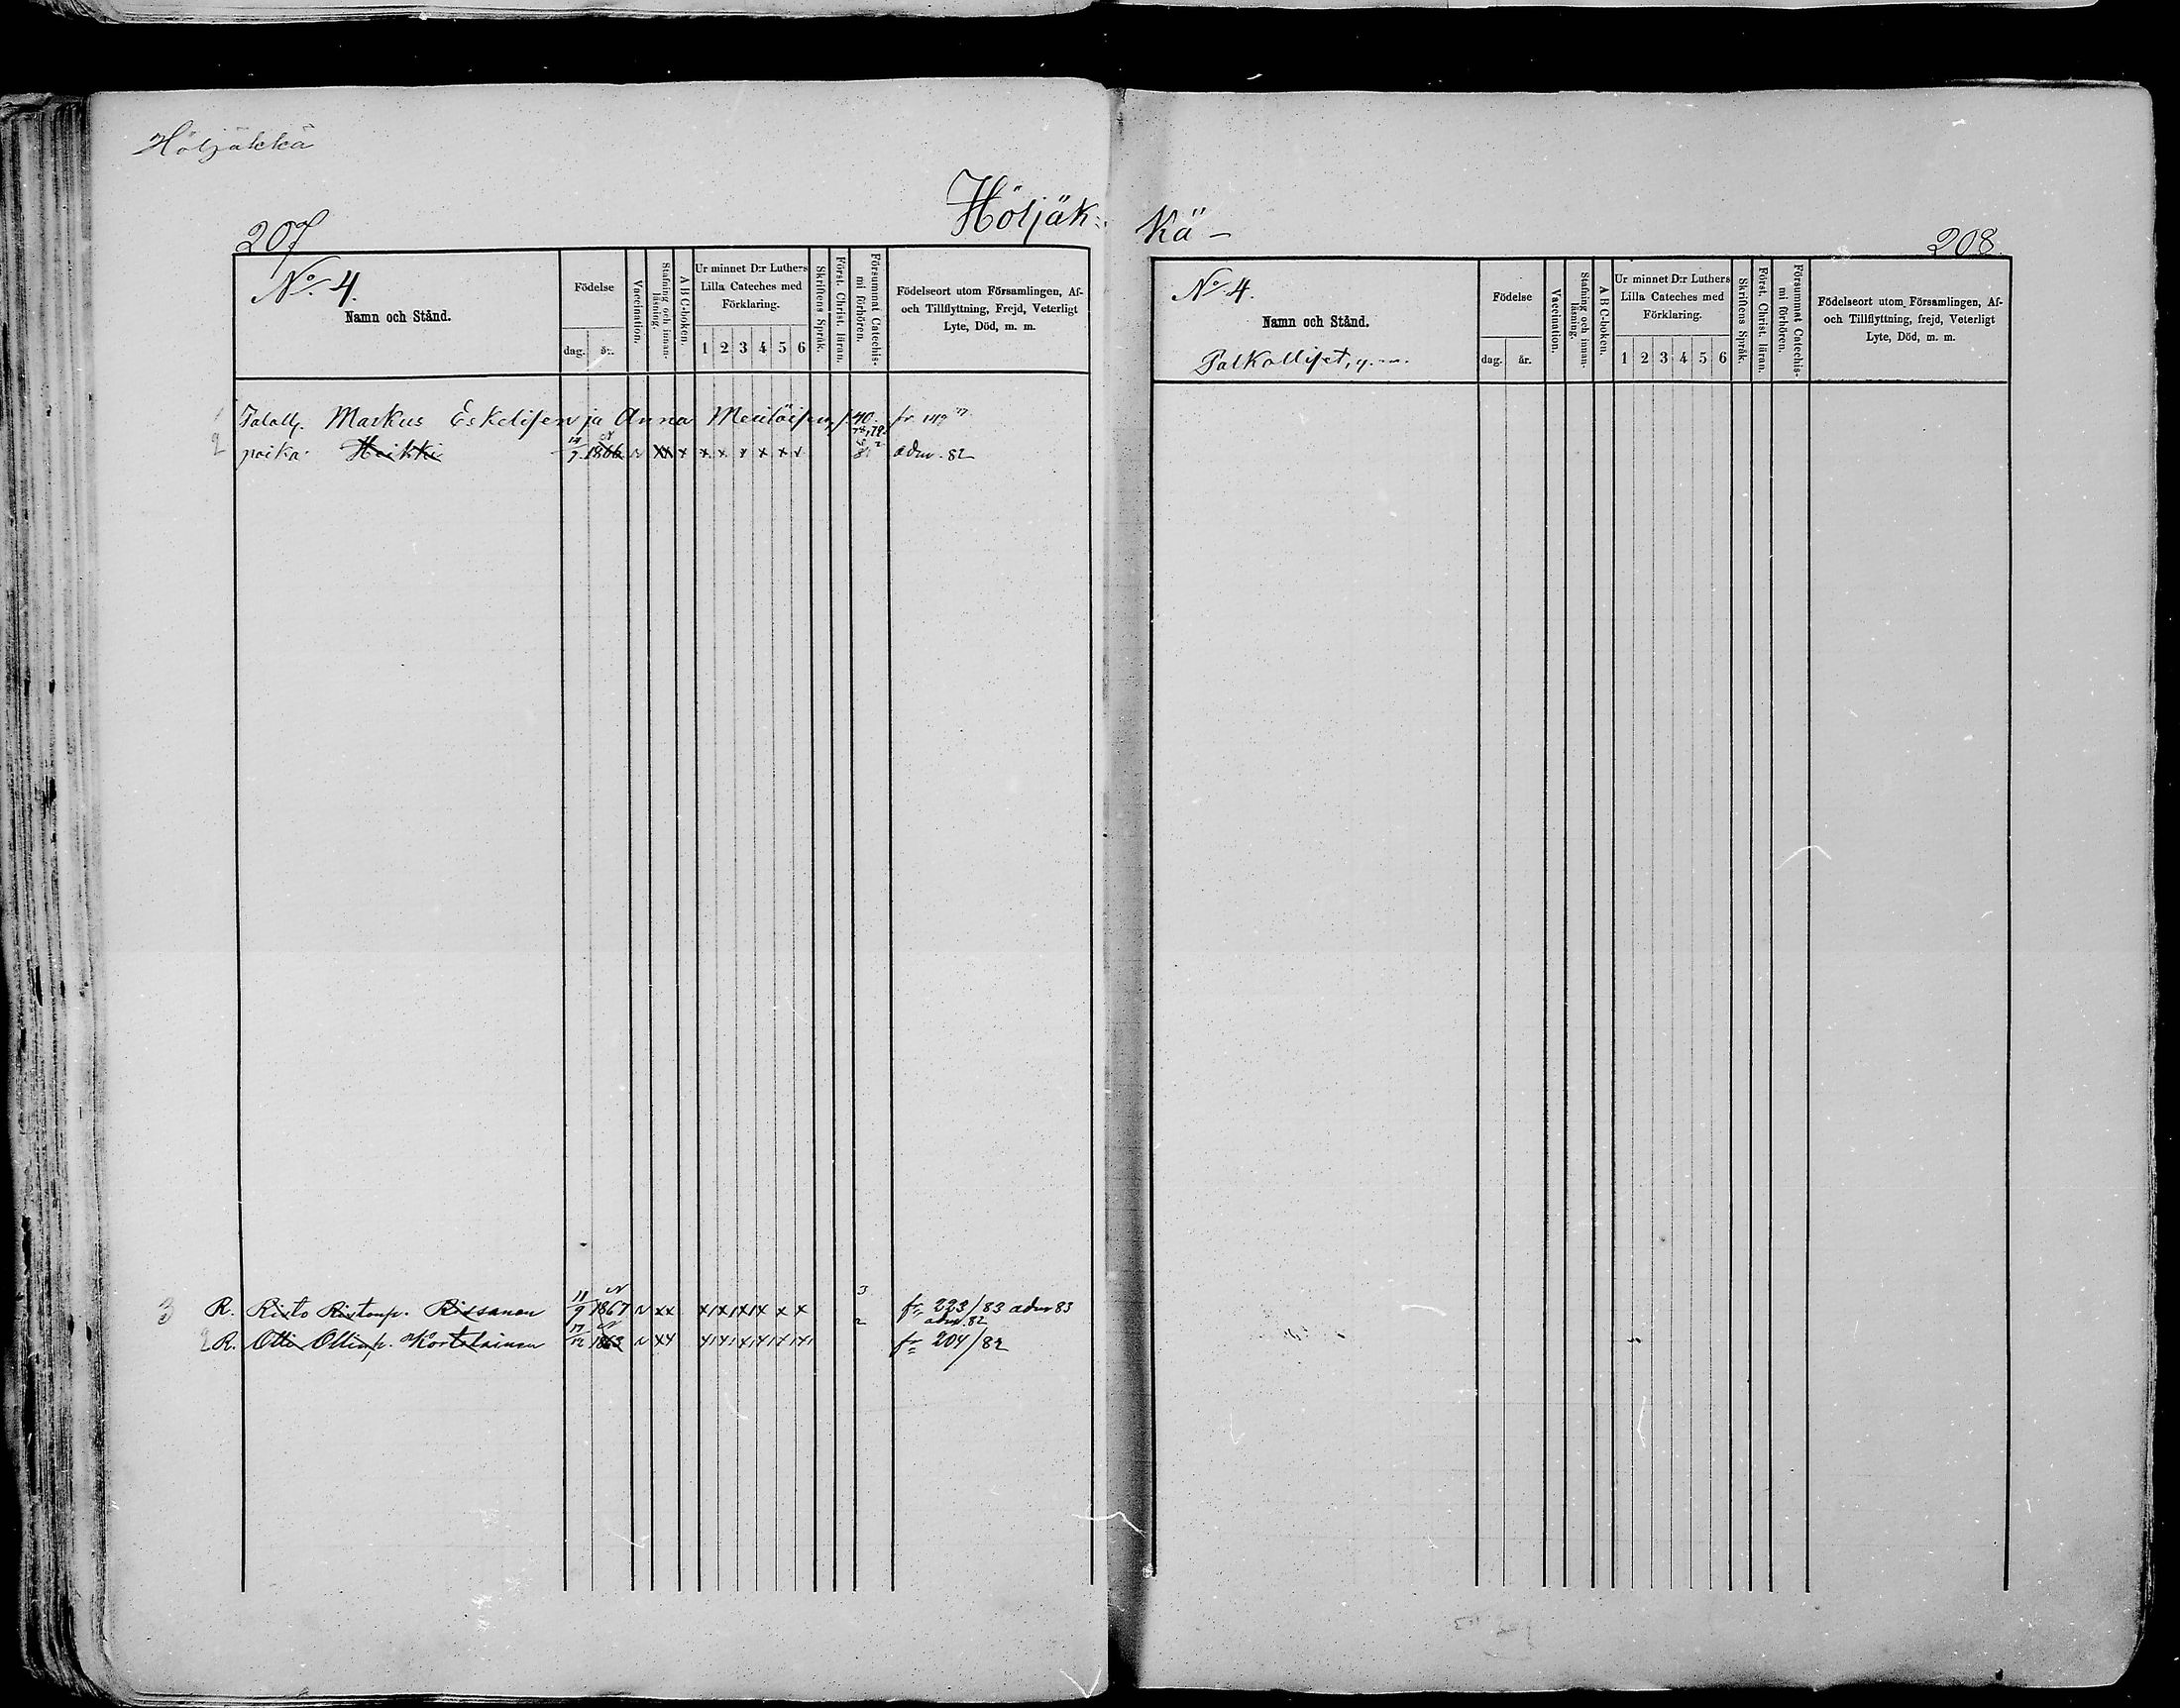 Höljäkkä
Höljäk-
207
No. 4.
Namn och Stånd.
Födelse
dag.
år.
Vaccination.
Stafning och innan-
läsning.
A B C-boken.
Ur minnet D:r Luthers
Lilla Cateches med
Förklaring.
1 2 3 4 5 6
Skriftens Språk.
Först. Christ. läran.
Försummat Catechis-
mi förhören.
Födelseort utom Församlingen, Af-
och Tillflyttning, Frejd, Veterligt
Lyte, Död, m. m.
Markus Eskelisen ja Anna
2 poika Heikki 1866 v xx x x x x x x x adm. 82
3 R. Risto Ristonp. Rissanen 11/9 1867 v xx x x x x x x 3 fr. 223/83 adm 83
2 R. Olli Ollinp. Kortelainen 17/12 1863 v xx 2 adm. 82
fr. 204/82
kä -
208.
No. 4.
Namn och Stånd.
Palkolliset, y. m.
Födelse
dag.
år.
Vaccination.
Stafning och innan-
läsning.
A B C-boken.
Ur minnet D:r Luthers
Lilla Cateches med
Förklaring.
1 2 3 4 5 6
Skriftens Språk.
Först. Christ. läran.
Försummat Catechis-
mi förhören.
Födelseort utom Församlingen, Af-
och Tillflyttning, frejd, Veterligt
Lyte, Död, m. m.